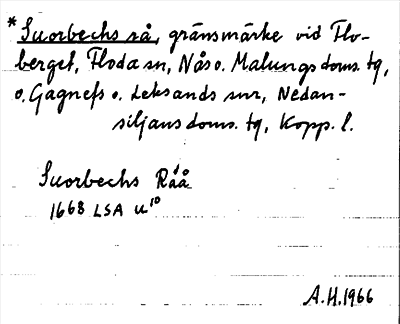 *Suorbechs rå, gränsmärke vid Flo-
berget, Floda sn, Nås o. Malungs doms. tg,
o. Gagnefs o. Leksands snr, Nedan-
siljans doms. tg, Kopp. l.
Suorbechs Råå
1668 LSA u10
A.H. 1966